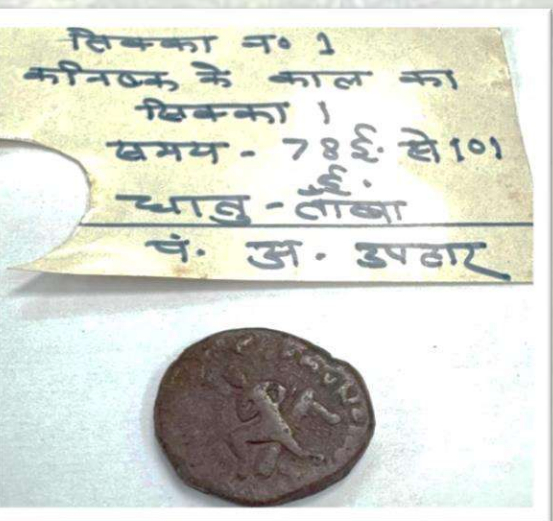 सिक्का न० 1
कनिष्क के काल का
सिक्का ।
समय - 78ई. से 101
ई.
धातु - ताँबा
पं. अ. उपहार